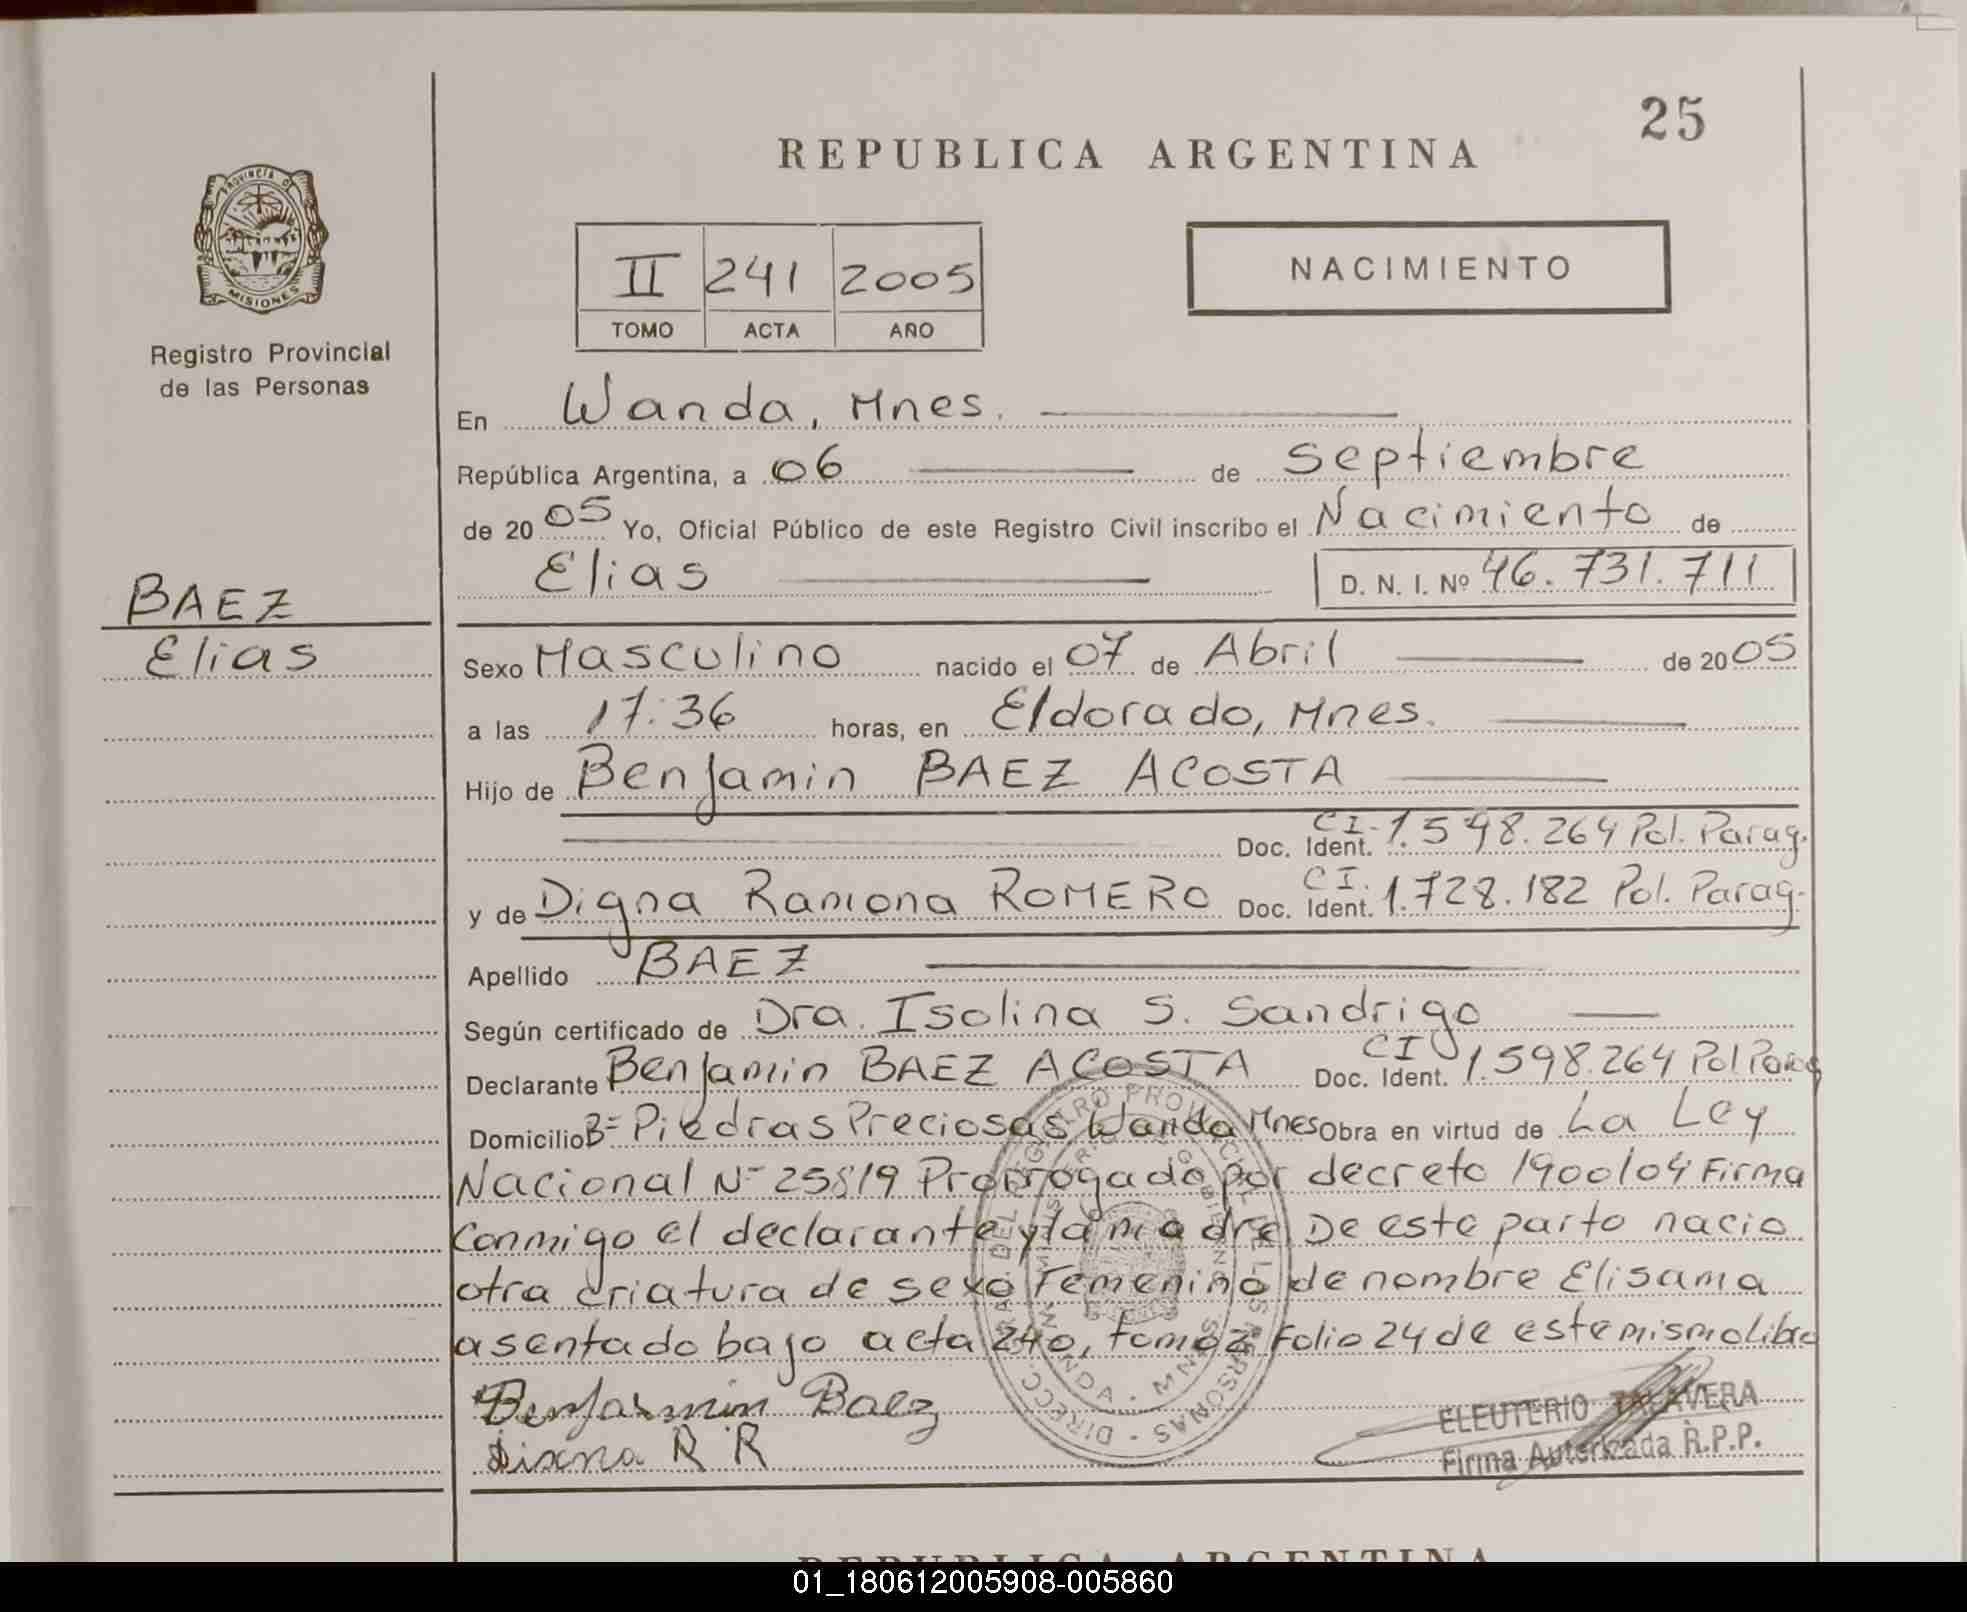 25
REPUBLICA ARGENTINA
PROVINCIA DE
MISIONES
Registro Provincial
de las Personas
II 241 2005
TOMO ACTA AÑO
NACIMIENTO
En Wanda, Mnes.
República Argentina, a 06 de Septiembre
de 2005 Yo, Oficial Público de este Registro Civil inscribo el Nacimiento de
Elias D. N. I. Nº 46.731.711
BAEZ
Elias
Sexo Masculino nacido el 07 de Abril de 2005
a las 17:36 horas, en Eldorado, Mnes.
Hijo de Benjamin BAEZ ACOSTA
Doc. Ident. CI-1.598.264 Pol. Parag.
y de Digna Ramona ROMERO Doc. Ident. CI. 1.728.182 Pol. Parag.
Apellido BAEZ
Según certificado de Dra. Isolina S. Sandrigo
Declarante Benjamin BAEZ ACOSTA Doc. Ident. CI 1.598.264 Pol Parag
Domicilio B= Piedras Preciosas Wanda Mnes Obra en virtud de La Ley
Nacional N- 25819 Prorrogado por decreto 1900/04 Firma
Conmigo el declarante y la madre De este parto nacio
otra criatura de sexo Femenino de nombre Elisama
asentado bajo acta 240, tomo 2 Folio 24 de este mismo libro
Benjasmin Baez
R R
ELEUTERIO TALAVERA
Firma Autorizada R.P.P.
REPUBLICA ARGENTINA
01_180612005908-005860